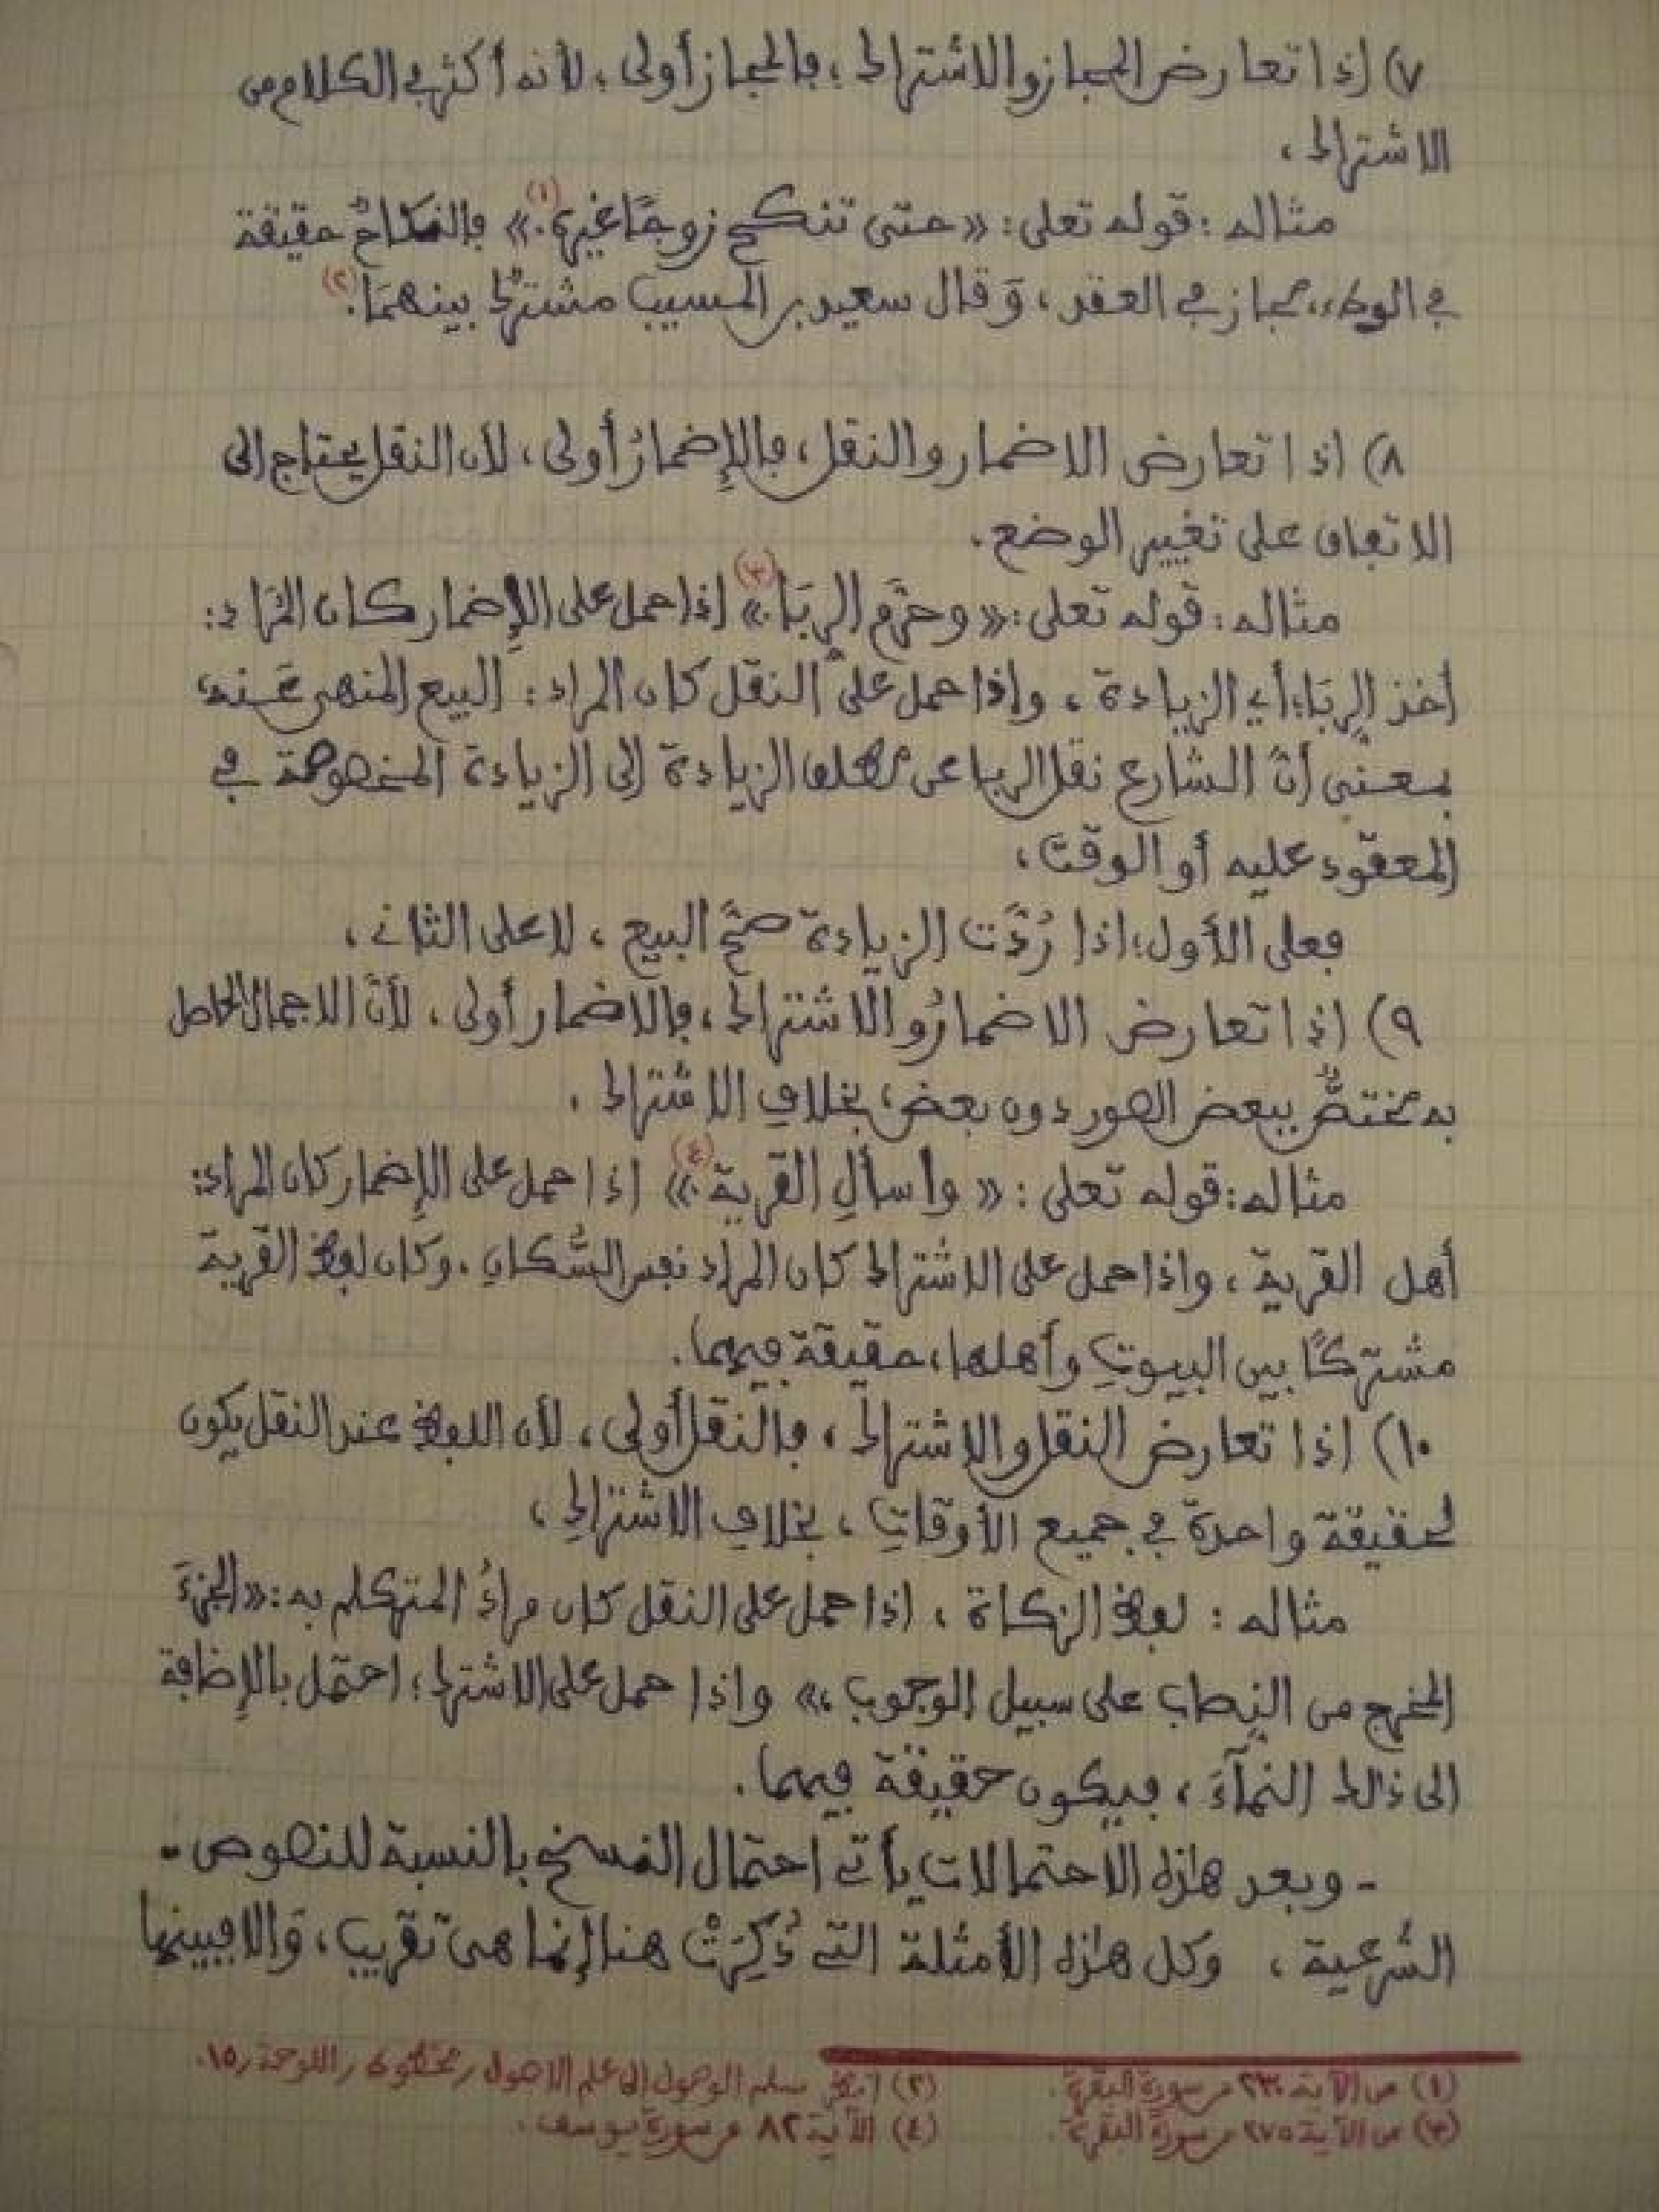 ٧) إذا تعارض المجاز والاشتراك، فالمجاز أولى، لأنه أكثر في الكلام من
الاشتراك،
مثاله: قوله تعلى: «حتى تنكح زوجًا غيره.»(١) فالنكاحُ حقيقة
في الوطء، مجاز في العقد، وَقال سعيد بن المسيب مشتركٌ بينهمَا.(٢)
٨) اذا تعارض الاضمار والنقل، فالإِضمارُ أولى، لأن النقل يحتاج إلى
الاتفاق على تغيير الوضع.
مثاله: قوله تعلى: «وحرَّم الرِبَا.»(٣) إذا حمل على الإِضمار كان المرَاد:
أخذ الرِبَا، أي الزيادة، وإذا حمل على النقل كان المراد: البيع المنهى عَنه،
بمعنى أنَّ الشارع نقل الربا عن مطلق الزيادة إلى الزيادة المخصوصة في
المعقود عليه أو الوقت،
فعلى الأول؛ اذا رُدَّت الزيادة صحَّ البيع، لا على الثانى،
٩) إذا تعارض الاضمارُ والاشتراك، فالاضمار أولى، لأنَّ الاجمال الحاصل
به مختصٌّ ببعض الصور دون بعض، بخلافِ الاشتراك.
مثاله: قوله تعلى: «واسألِ القرية.»(٤) إذا حمل على الإِضمار كان المراد:
أهل القرية، واذا حمل على الاشتراك كان المراد نفس السُّكانِ. وكان لفظ القرية
مشتركًا بين البيوتِ وأهلها، حقيقة فيهما.
١٠) إذا تعارض النقل والاشتراك، فالنقل أولى، لأن اللفظ عند النقل يكون
لحقيقة واحدة في جميع الأوقاتِ، بخلافِ الاشتراكِ،
مثاله: لفظ الزكاة، إذا حمل على النقل كان مرادُ المتكلم به: «الجزءَ
المخرج من النِصاب على سبيل الوجوب.» واذا حمل على الاشتراك؛ احتمل بالإِضافة
إلى ذالك النمآءَ، فيكون حقيقة فيهما.
- وبعد هاذه الاحتمالات يأتى احتمال النسخ بالنسبة للنصوص -
الشرعية، وكل هاذه الأمثلة التى ذُكِرَتْ هنا إنما هى تقريب، وَالا فبينها
(١) من الآية ٢٣٠ من سورة البقرة.
(٢) انظر سلم الوصول إلى علم الاصول، مخطوط، اللوحة، ١٥.
(٣) من الآية ٢٧٥ من سورة البقرة.
(٤) الآية ٨٢ من سورة يوسف.